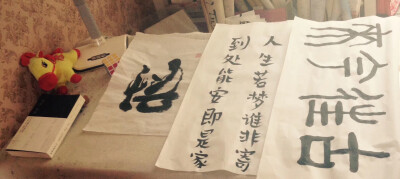 人生若梦谁非寄
到处能安即是家
今
古